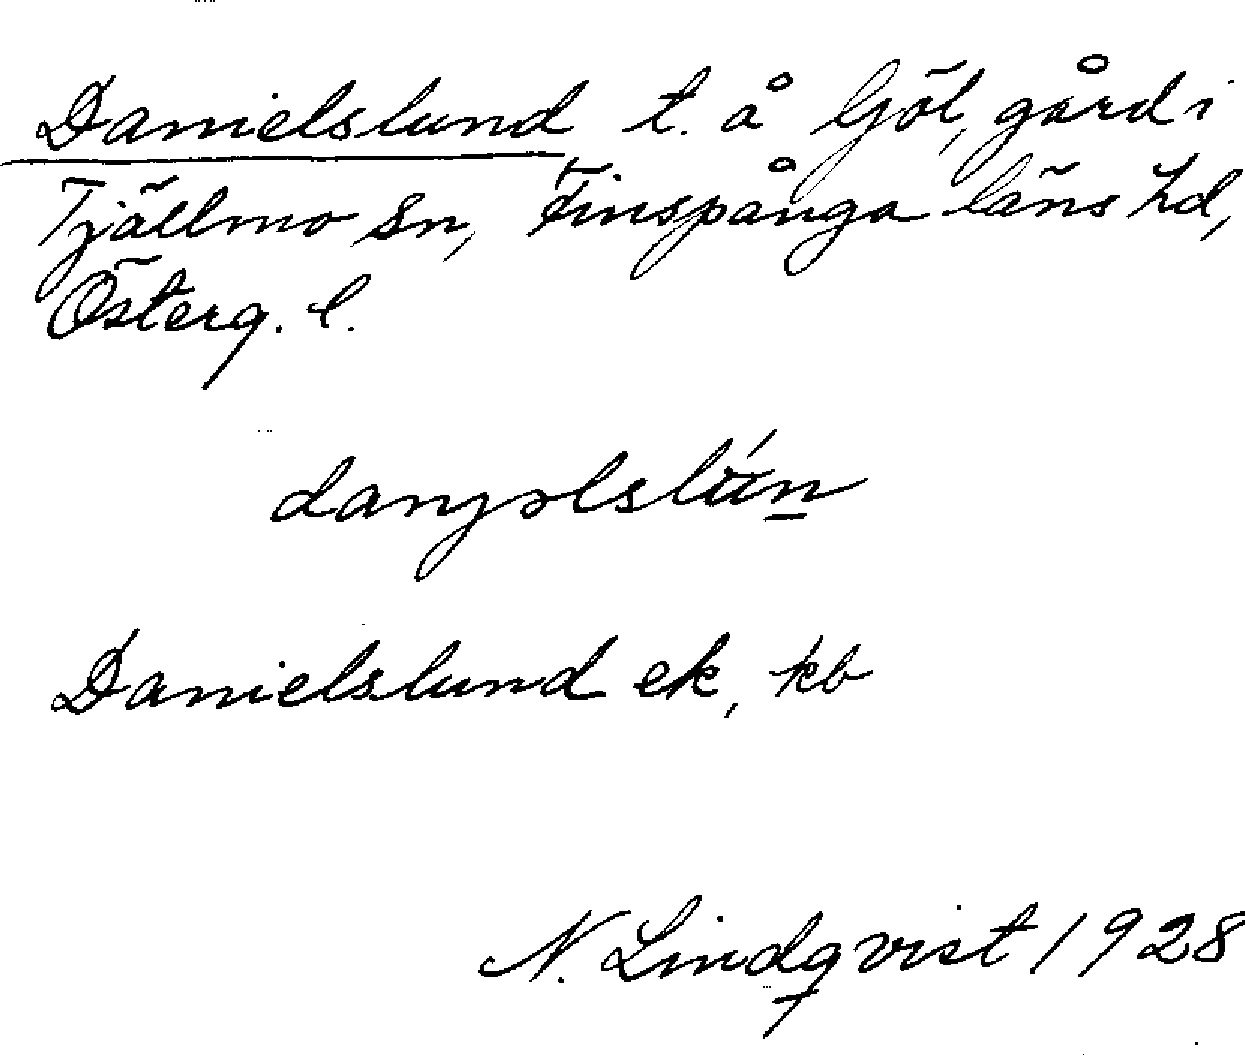 Danielslund t. å Göl, gård i
Tjällmo sn, Finspånga läns hd,
Österg. l.
danjəlslún
Danielslund ek, kb
N. Lindqvist 1928